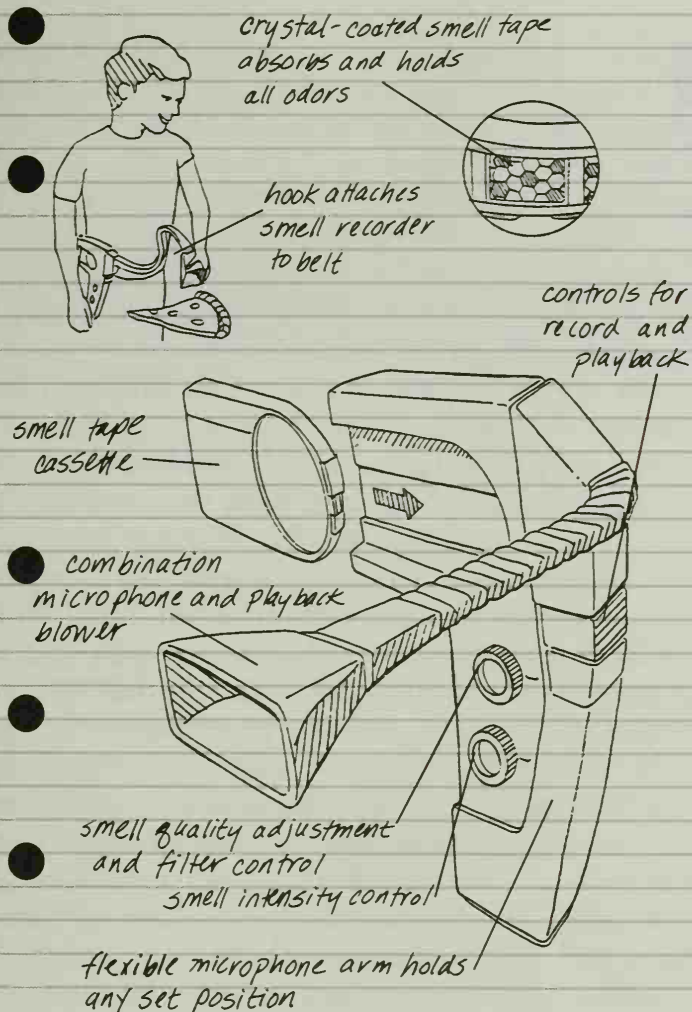 crystal-coated smell tape
absorbs and holds
all odors
hook attaches
smell recorder
to belt
controls for
record and
playback
smell tape
cassette
combination
microphone and playback
blower
smell quality adjustment
and filter control
smell intensity control
flexible microphone arm holds
any set position